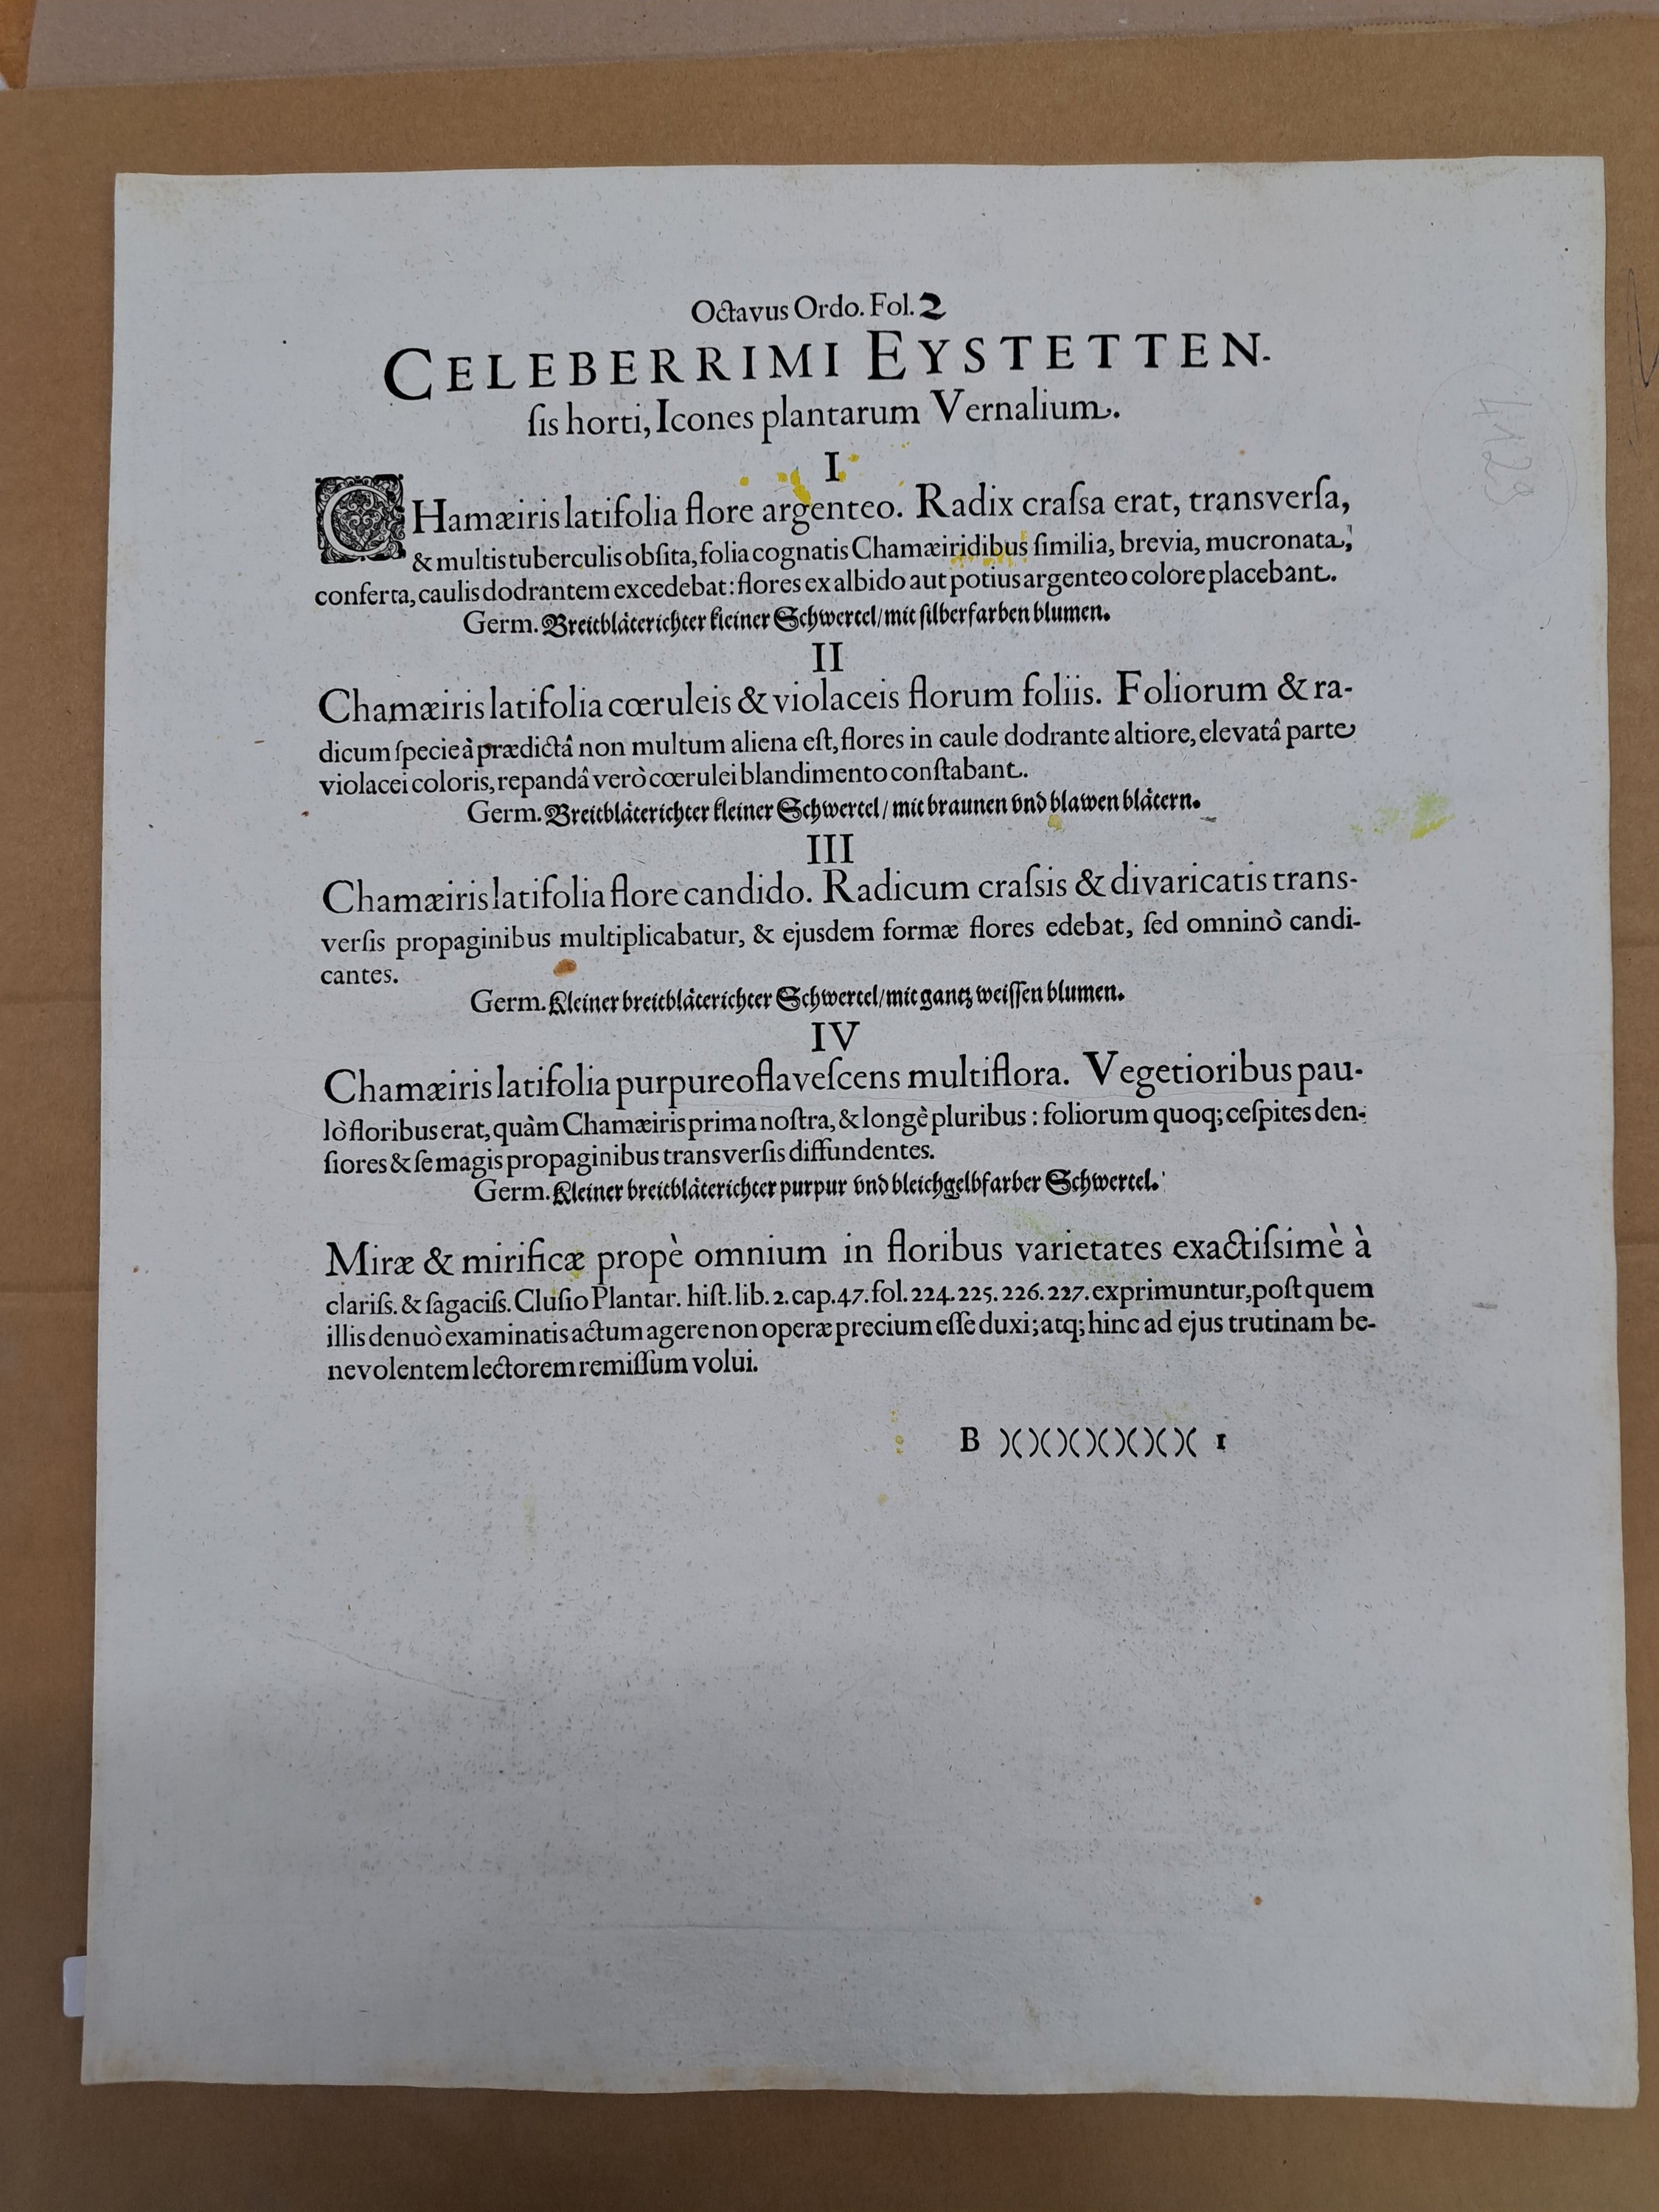 Octavus Ordo. Fol. 2
CELEBERRIMI EYSTETTEN-
ſis horti, Icones plantarum Vernalium.
I
CHamæiris latifolia flore argenteo. Radix craſsa erat, transverſa,
& multis tuberculis obſita, folia cognatis Chamæiridibus ſimilia, brevia, mucronata,
conferta, caulis dodrantem excedebat: flores ex albido aut potius argenteo colore placebant.
Germ. Breitbläterichter kleiner Schwertel/ mit ſilberfarben blumen.
II
Chamæiris latifolia cœruleis & violaceis florum foliis. Foliorum & ra-
dicum ſpecie à prædictâ non multum aliena eſt, flores in caule dodrante altiore, elevatâ parte
violacei coloris, repandâ verò cœrulei blandimento conſtabant.
Germ. Breitbläterichter kleiner Schwertel/ mit braunen vnd blawen blätern.
III
Chamæiris latifolia flore candido. Radicum craſsis & divaricatis trans-
verſis propaginibus multiplicabatur, & ejusdem formæ flores edebat, ſed omninò candi-
cantes.
Germ. Kleiner breitbläterichter Schwertel/ mit gantz weiſſen blumen.
IV
Chamæiris latifolia purpureoflaveſcens multiflora. Vegetioribus pau-
lò floribus erat, quàm Chamæiris prima noſtra, & longè pluribus: foliorum quoq; ceſpites den-
ſiores & ſe magis propaginibus transverſis diffundentes.
Germ. Kleiner breitbläterichter purpur vnd bleichgelbfarber Schwertel.
Miræ & mirificæ propè omnium in floribus varietates exactiſsimè à
clariſs. & ſagaciſs. Cluſio Plantar. hiſt. lib. 2. cap. 47. fol. 224. 225. 226. 227. exprimuntur, poſt quem
illis denuò examinatis actum agere non operæ precium eſſe duxi; atq; hinc ad ejus trutinam be-
nevolentem lectorem remiſſum volui.
B )( )( )( )( )( )( )( 1
4129